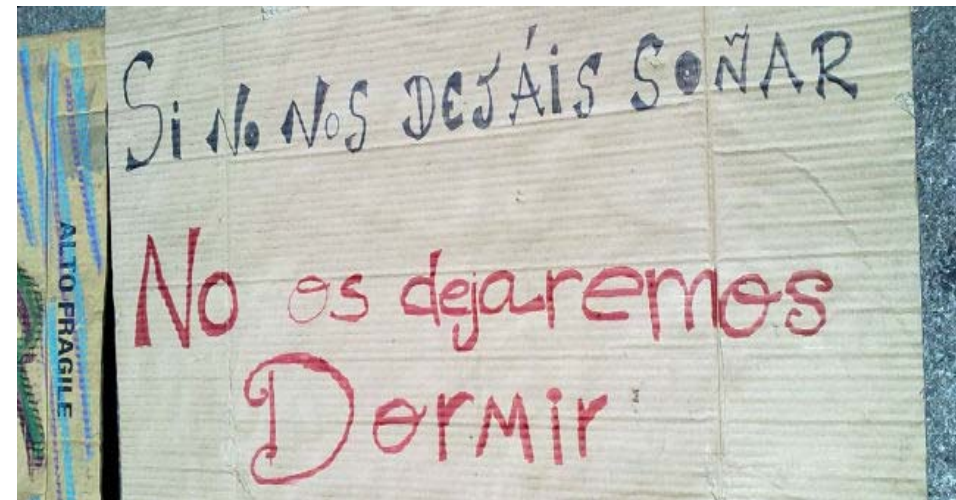 Si No Nos DEJÁiS SOÑAR
No os dejaremos
DorMir
ALTO FRAGILE